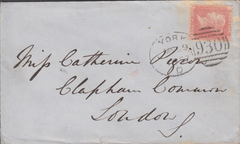 YORK
930
Miss Catherine
Clapham Common
London
S.